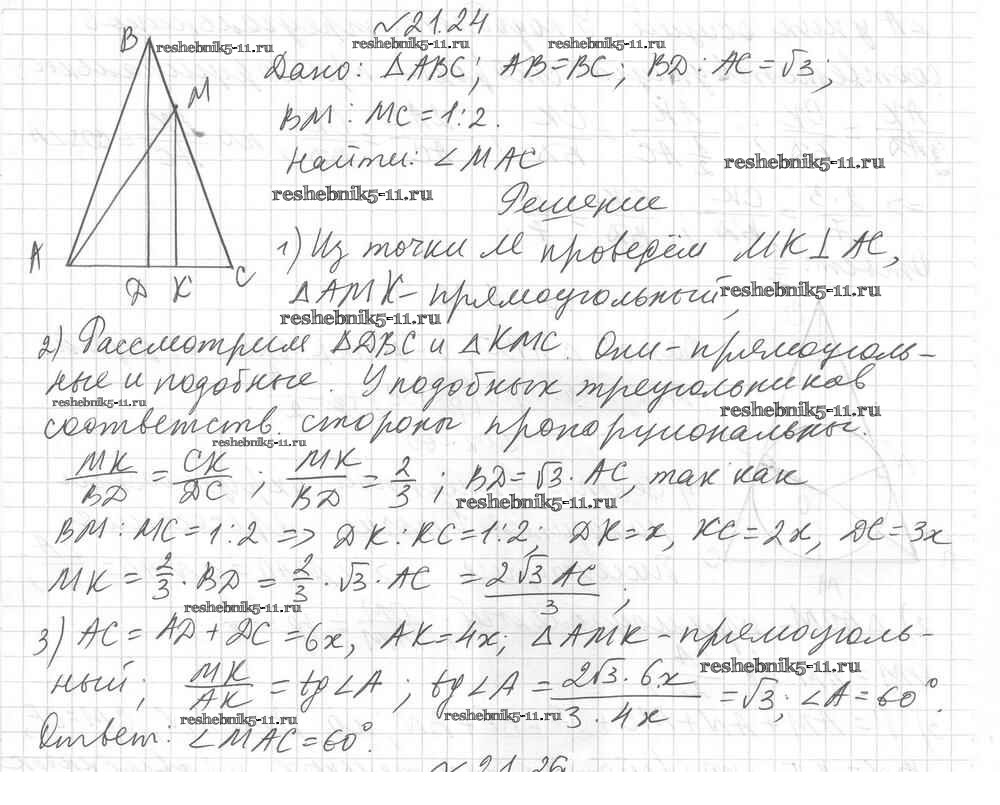 №21.24
B
reshebnik5-11.ru reshebnik5-11.ru reshebnik5-11.ru
Дано: △ABC; AB=BC; BD:AC=√3;
M
BM:MC=1:2.
Найти: ∠MAC
reshebnik5-11.ru reshebnik5-11.ru
Решение
1) Из точки M проведём MK⊥AC,
A C
D K
△AMK-прямоугольный,
reshebnik5-11.ru reshebnik5-11.ru
2) Рассмотрим △DBC и △KMC. Они-прямоуголь-
ные и подобные. У подобных треугольников
reshebnik5-11.ru reshebnik5-11.ru
соответств. стороны пропорциональны.
reshebnik5-11.ru
MK/BD = CK/DC; MK/BD = 2/3; BD=√3·AC, так как
reshebnik5-11.ru
BM:MC=1:2 => DK:KC=1:2; DK=x, KC=2x, DC=3x
MK = 2/3·BD = 2/3·√3·AC = 2√3AC/3;
reshebnik5-11.ru
3) AC=AD+DC=6x, AK=4x; △AMK-прямоуголь-
reshebnik5-11.ru
ный; MK/AK = tg∠A; tg∠A = 2√3·6x/3·4x = √3; ∠A=60°.
reshebnik5-11.ru reshebnik5-11.ru
Ответ: ∠MAC=60°.
№21.26